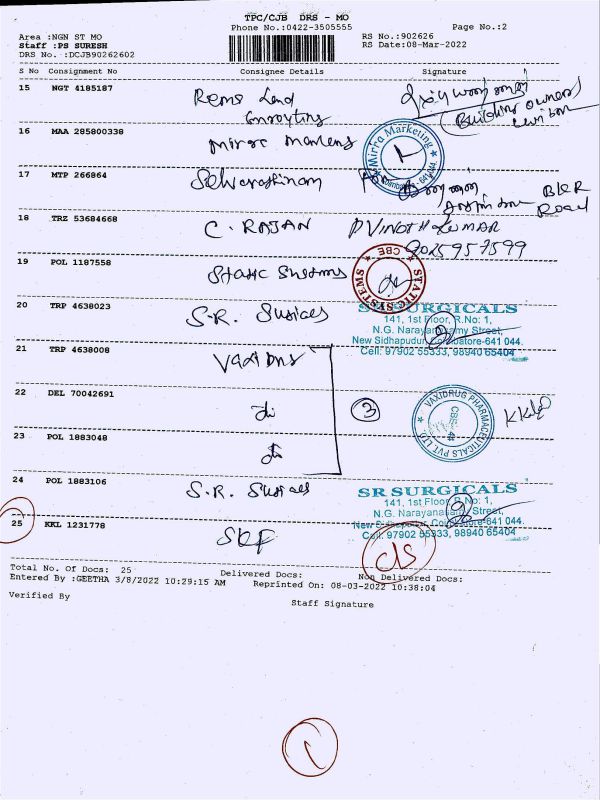 TPC/CJB DRS - MO
Phone No.:0422-3505555
Page No.:2
Area :NGN ST MO
RS No.:902626
Staff :PS SURESH
RS Date:08-Mar-2022
DRS No. :DCJB90262602
S No Consignment No Consignee Details Signature
15 NGT 4185187
(Building owner)
16 MAA 285800338
Mirra Marketing
17 MTP 266864 Selvarathinam
Road
18 TRZ 53684668 C. RAJAN P VINOTH KUMAR
9025957599
19 POL 1187558 Static Systems
STATIC SYSTEMS ★ CBE ★
20 TRP 4638023 S.R. Susicals
SR SURGICALS
141, 1st Floor, R.No: 1,
N.G. Narayanasamy Street,
New Sidhapudur, Coimbatore-641 044.
Cell: 97902 55333, 98940 65404
21 TRP 4638008
22 DEL 70042691
3
VAXIDRUG PHARMACEUTICALS PVT. LTD.
CBE
23 POL 1883048
24 POL 1883106 S.R. Susicals
SR SURGICALS
141, 1st Floor, R.No: 1,
N.G. Narayanasamy Street,
New Sidhapudur, Coimbatore-641 044.
Cell: 97902 55333, 98940 65404
25 KKL 1231778 SKF
Cls
Total No. Of Docs: 25 Delivered Docs: Non Delivered Docs:
Entered By :GEETHA 3/8/2022 10:29:15 AM Reprinted On: 08-03-2022 10:38:04
Verified By Staff Signature
1